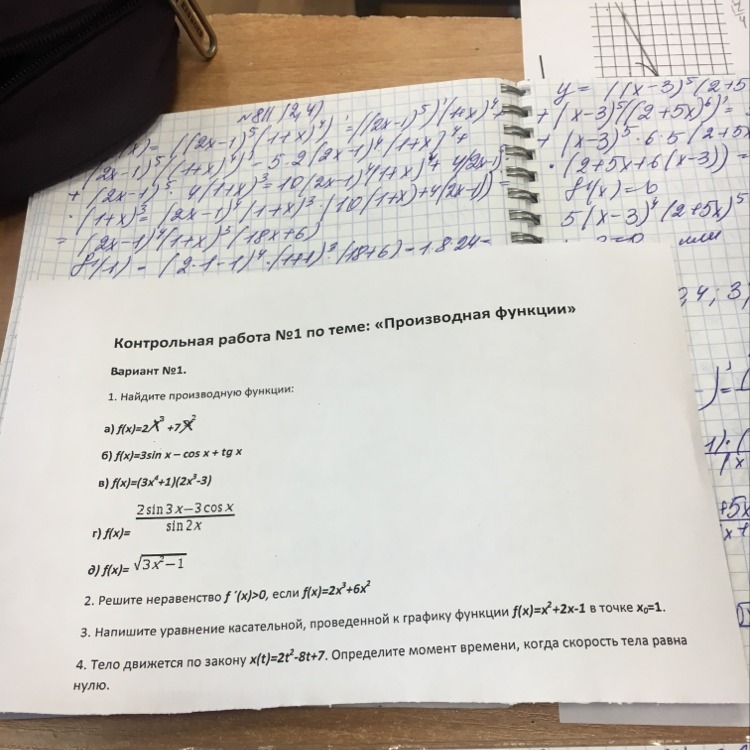 №811 (2,4)
= ((2x-1)⁵(1+x)⁴)' = ((2x-1)⁵)'(1+x)⁴+
(2x-1)⁵((1+x)⁴)' = 5·2(2x-1)⁴(1+x)⁴+
+ (2x-1)⁵·4(1+x)³=10(2x-1)⁴(1+x)⁴+4(2x-1)⁵·
·(1+x)³= (2x-1)⁴(1+x)³(10(1+x)+4(2x-1))=
= (2x-1)⁴(1+x)³(18x+6)
f'(1) = (2·1-1)⁴·(1+1)³·(18+6)=1·8·24=
y = ((x-3)⁵(2+5
+(x-3)⁵((2+5x)⁶)'=
+(x-3)⁵·6·5(2+5x
·(2+5x+6(x-3))=
f'(x)=0
5(x-3)⁴(2+5x)⁵
или
Контрольная работа №1 по теме: «Производная функции»
Вариант №1.
1. Найдите производную функции:
а) f(x)=2x³ +7x²
б) f(x)=3sin x – cos x + tg x
в) f(x)=(3x⁴+1)(2x³-3)
2 sin 3 x–3 cos x
г) f(x)=
sin 2 x
д) f(x)= √3x²–1
2. Решите неравенство f ´(x)>0, если f(x)=2x³+6x²
3. Напишите уравнение касательной, проведенной к графику функции f(x)=x²+2x-1 в точке x₀=1.
4. Тело движется по закону x(t)=2t²-8t+7. Определите момент времени, когда скорость тела равна
нулю.